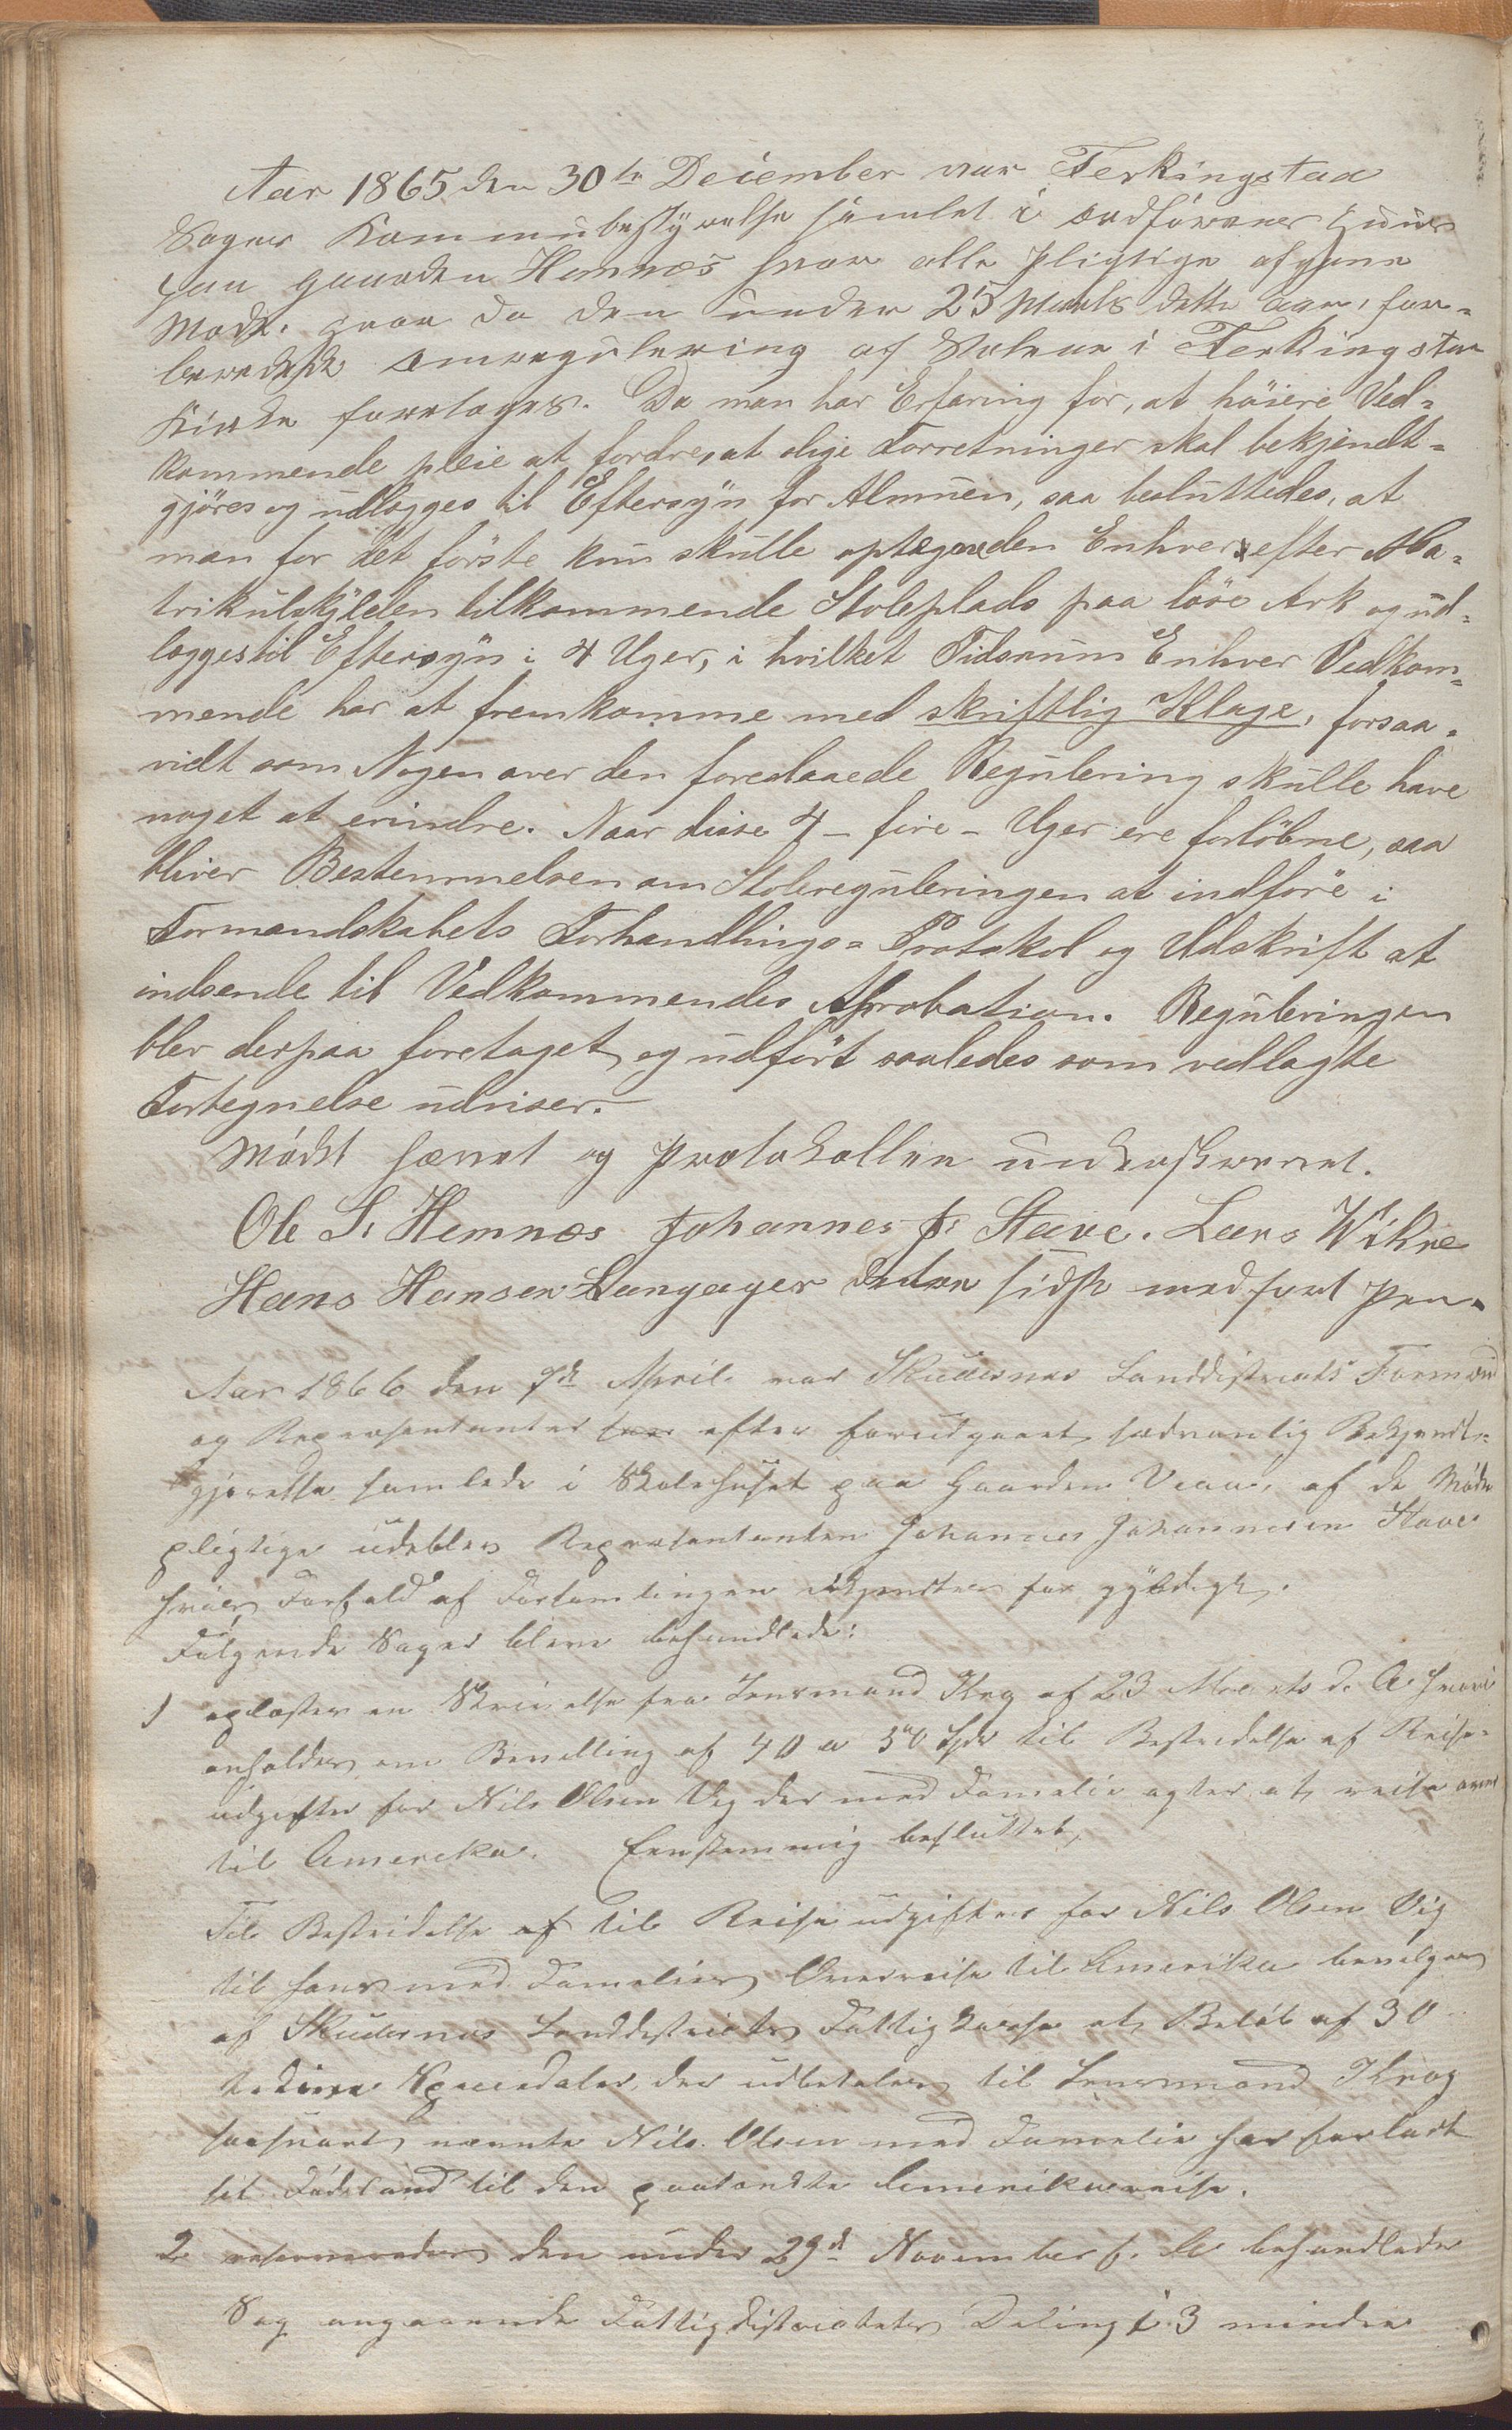 Aar 1865 den 30te December var Ferkingstad
Sogns Kommunbestyrelse samlet i ordførerens Huus
paa gaarden Hemnæs hvor alle pligtige afgave
Møde, hvor da den under 25 Marts dette Aar, for-
beredede omregulering af Stolene i Ferkingstad
Kirke foretoges. Da man har Erfaring for, at höiere Ved-
kommende pleie at fordre, at slige Forretninger skal bekjendt-
gjöres og udlægges til Eftersyn for Almuen, saa besluttedes, at
man for det förste kun skulle optegne den Enhver efter Ma-
trikulskylden tilkommende Stoleplads paa löse Ark og ud-
lægges til Eftersyn i 4 Uger, i hvilket Tidsrum Enhver Vedkom-
mende har at fremkomme med skriftlig Klage, forsaa-
vidt som Nogen over den foreslaaede Regulering skulle have
noget at erindre. Naar disse 4 - fire - Uger ere forlöbne, saa
bliver Bestemmelsen om Stolereguleringen at indföre i
Formandskabets Forhandlings-Protokol og Udskrift at
indsende til Vedkommendes Aprobation. Reguleringen
blev derpaa foretaget og udfört saaledes som vedlagte
Fortegnelse udviser.
Mødet hævet og Protokollen underskrevet.
Ole S. Hemnæs Johannes J. Stave. Lars Wikre
Hans Hansen Langager den sidste med ført Pen.
Aar 1866 den 7de April var Skudesnes Landdistrikts Formænd
og Repræsentanter efter forudgaaet sædvanlig Bekjendt-
gjørelse samlede i Skolehuset paa Gaarden Veaa, af de Møde
pligtige udeblev Repræsentanten Johannes Johannesen Stave
hvis Forfald af Forsamlingen eragtedes for gyldigt.
Følgende Sager bleve behandlede:
1 oplæstes en Skrivelse fra Lensmand Krog af 23 Marts d. A. hvori
anholdes om Bevilling af 40 a 50 Spd til Bestridelse af Reise-
udgifter for Nils Olsen Vig der med Familie agter at reise over
til Amerika. Eenstemmig besluttet,
Til Bestridelse af til Reiseudgifter for Nils Olsen Vig
til hans med Families Overreise til Amerika bevilges
af Skudesnes Landdistrikts Fattigkasse et Beløb af 30
tredive Speciedaler, der udbetales til Lensmand Krog
saasnart nævnte Nils Olsen med Familie har forladt
sit Fødeland til den paatænkte Amerikareise.
2 den under 29de November f. A. behandlede
Sag angaaende Fattigdistriktets Deling i 3 mindre